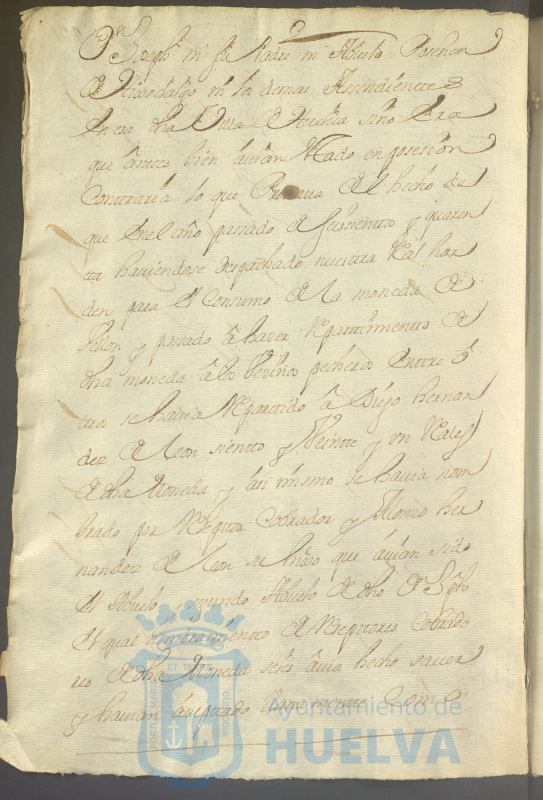 Dn Joseph ni su Padre ni Abuelo Posesion
de Hixodalgo ni los demas Ascendientes
en esa dha Villa de Huelva sino era
que antes bien avian estado en posesion
Contraria lo que Provava el hecho de
que en el año pasado de seiscientos y quaren
ta haviendose despachado nuestra Real hor
den para el Consumo de la moneda de
Vellon y pasado a hazer Repartimiento de
dha moneda a los Vezinos pecheros entre o
tros se havia Repartido a Diego hernan
dez de Leon siento y Veinte y un Reales
de dha Moneda y asi mismo se havia nom
brado por Cobrador y Alonso her
nandez de Leon su hixo que avian sido
el Abuelo y segundo Abuelo de dho Dn Jph
el qual nombramiento de Reseptores Cobrado
res de dha Moneda se les avia hecho saver
y havian aseptado llanamente Como
Ayuntamiento de
HUELVA